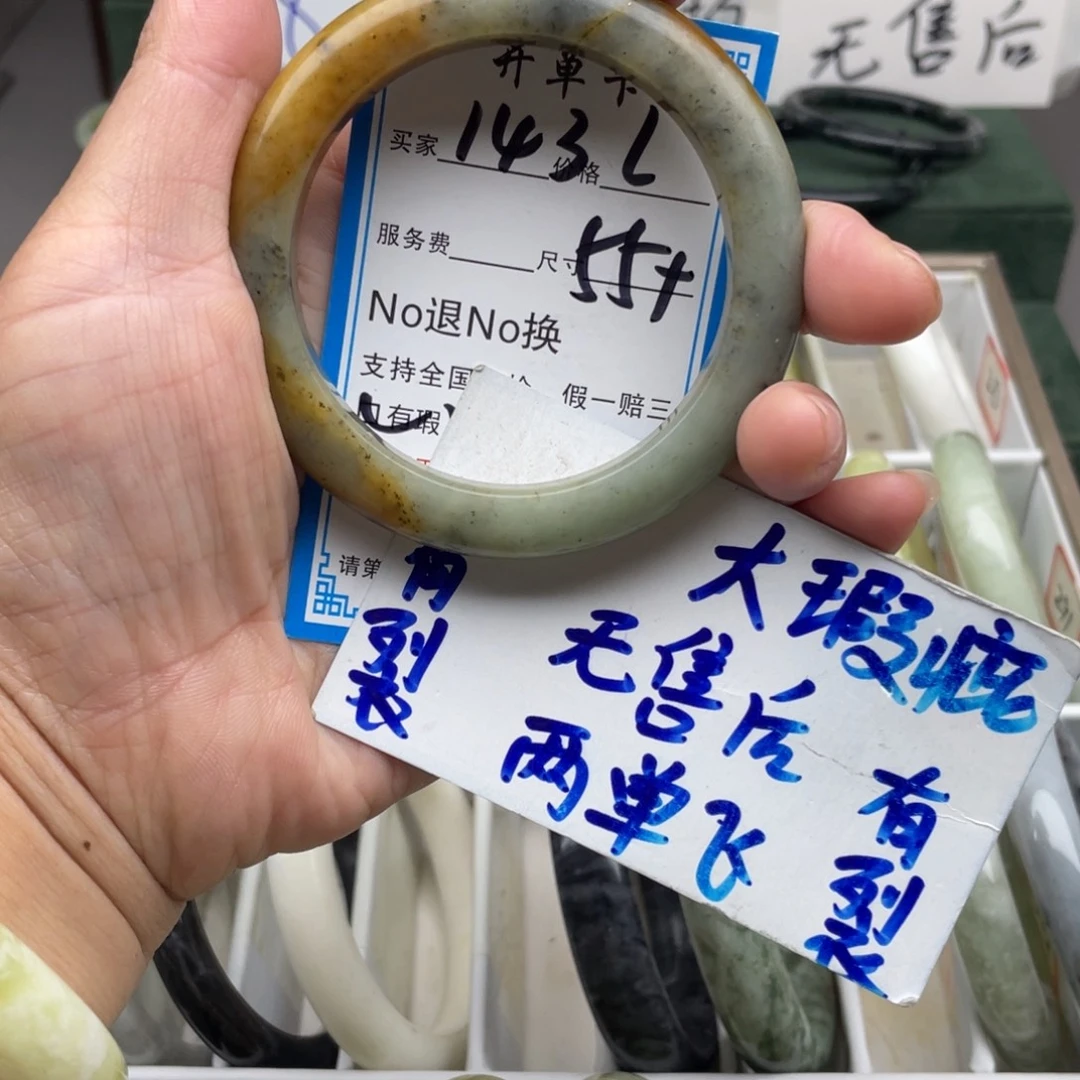 无售后
开单卡
买家 143 价格 L
服务费 尺寸 55+
No退No换
支持全国 假一赔三
口有瑕
请第
有裂
大瑕疵
无售后
两单飞
有裂